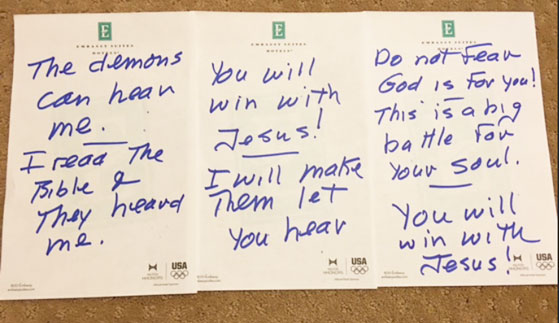 E
EMBASSY SUITES
HOTELS
The demons
can hear
me.
I read The
Bible &
They heard
me.
HILTON
HHONORS
USA
E
EMBASSY SUITES
HOTELS
You will
win with
Jesus!
I will make
Them let
You hear
HILTON
HHONORS
USA
E
EMBASSY SUITES
HOTELS
Do not Fear
God is For you!
This is a big
battle for
Your Soul.
You will
win with
Jesus!
HILTON
HHONORS
USA